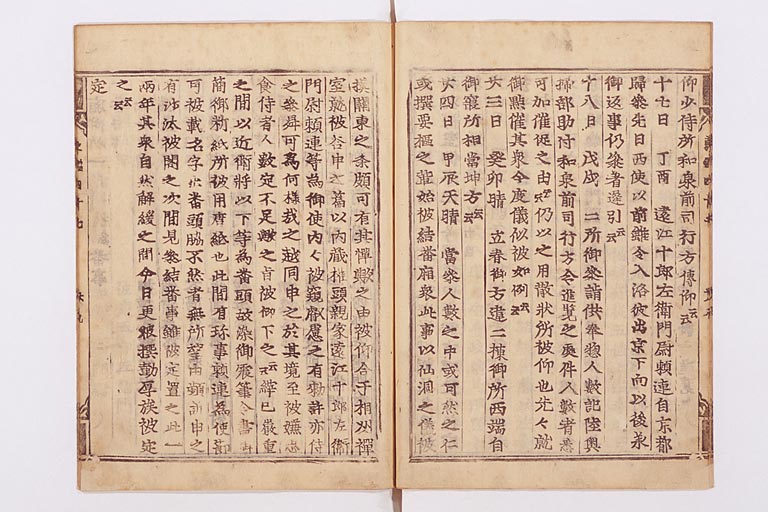 仰少侍所和泉前司行方傳仰云云
十七日 丁酉 遠江十郎左衛門尉頼連自京都
歸參先日西使以前雖令入洛彼出京下向以後泉
御返事仍參着遠引云云
十八日 戊戌 二所御參詣供奉惣人數記陸奥
掃部助付和泉前司行方令進覽之處件人數皆悉
可加催促之由云云仍以之用散状所被仰也先々就
御點催其衆今度儀似被如例云云
廿三日 癸卯晴 立春御方違二棟御所西端自
御寢所相當坤方云云
廿四日 甲辰天晴 當參人數之中或可然之仁
或撰要樞之輩始被結番廂衆此事以仙洞之儀被
摸關東之条頗可有其憚歟之由被仰合于相州禪
室就被答申之舊以内蔵権頭親家遠江十郎左衛
門尉頼連等為御使内々被窺叡慮之有勅許亦侍
之參昇可為何様哉之趣同申之於其境至被嫌
食侍者人數定不足歟之旨被仰下之云云縡已嚴重
之間以近衛將以下等為番頭故染御雁
簡御新紙所被用唐紙也此間有珎事頼連為使節
可被載名字於番頭脇不然者無所望由頻訓申之
有沙汰被閣之次間見參結番事雖被定置之此一
兩年其衆自然解緩之間今日更被撰勤厚族被定
之云云
定